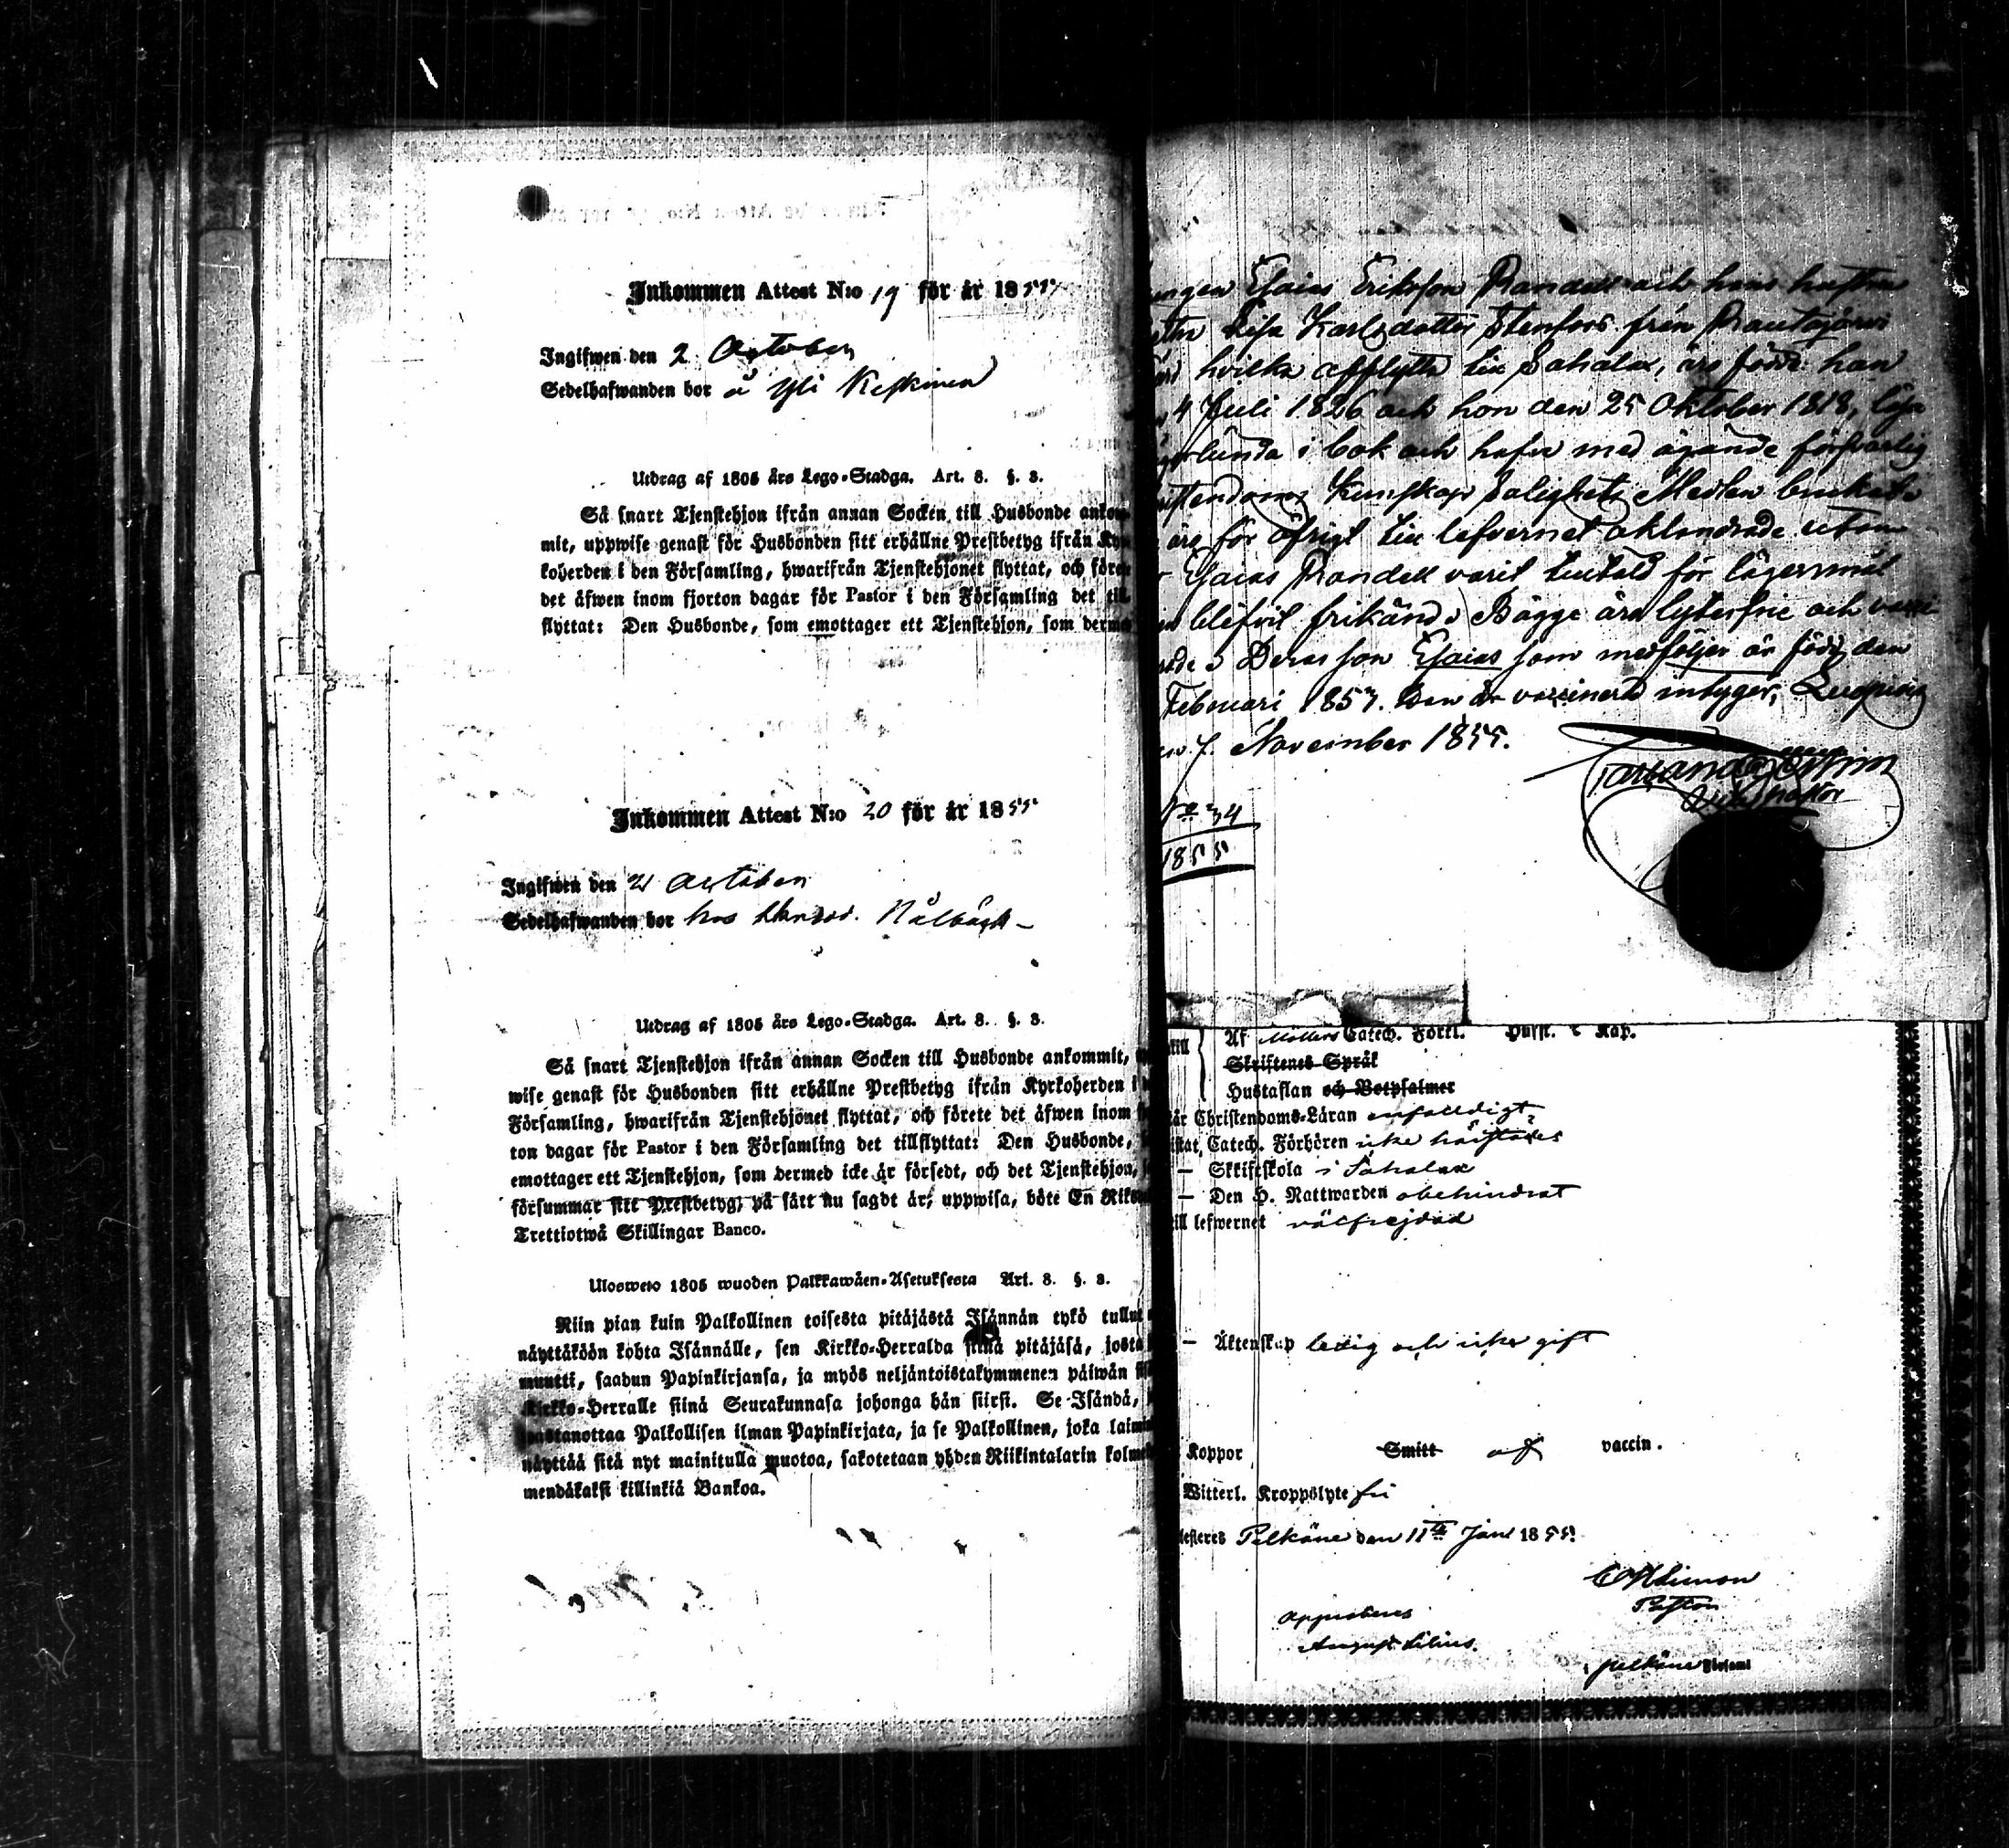 Inkommen Attest N:o 19 för år 1855
Ingifwen den 2 October
Sedelhafwanden bor å Yli Keskinen
Utdrag af 1805 års Lego-Stadga. Art. 8. §. 3.
Så snart Tjenstehjon ifrån annan Socken till Husbonde ankom-
mit, uppwise genast för Husbonden sitt erhållne Prestbetyg ifrån Kyr
koherden i den Församling, hwarifrån Tjenstehjonet flyttat, och före
det äfwen inom fjorton dagar för Pastor i den Församling det till
flyttat: Den Husbonde, som emottager ett Tjenstehjon, som derme
Inkommen Attest N:o 20 för år 1855
Ingifwen den 21 October
Sedelhafwanden bor hos
Utdrag af 1805 års Lego-Stadga. Art. 8. §. 3.
Så snart Tjenstehjon ifrån annan Socken till Husbonde ankommit,
wise genast för Husbonden sitt erhållne Prestbetyg ifrån Kyrkoherden i
Församling, hwarifrån Tjenstehjonet flyttat, och förete det äfwen inom
ton dagar för Pastor i den Församling det tillflyttat: Den Husbonde,
emottager ett Tjenstehjon, som dermed icke är försedt, och det Tjenstehjon,
försummar sitt Prestbetyg, på sätt nu sagdt är, uppwisa, böte En Riks
Trettiotwå Skillingar Banco.
Ulosweto 1805 wuoden Palkkawäen-Asetuksesta Art. 8. §. 3.
Niin pian kuin Palkollinen toisesta pitäjästä Isännän tykö tullut
näyttäköön kohta Isännälle, sen Kirkko-Herralda siinä pitäjäsä, josta
muutti, saadun Papinkirjansa, ja myös neljäntoistakymmenen päiwän
Kirkko-Herralle siinä Seurakunnasa johonga hän siirsi. Se Isändä,
wastanottaa Palkollisen ilman Papinkirjata, ja se Palkollinen, joka laimi
näyttää sitä nyt mainitulla muotoa, sakotetaan yhden Riikintalarin kolme
mendäkaksi killinkiä Bankoa.
Esaias Eriksson Randell och hans hustru
Lisa Karlsdotter Stenfors från Rautajärvi
hvilka afflytta till Sahalax, äro födde: han
4 Juli 1826 och hon den 25 Oktober 1818, läsa
i bok och hafva med ägande försvarlig
Kunskap Salighets Medlen brukat
äro för öfrigt till lefvernet oklandrade utom
Esaias Randell varit tilltald för lägersmål
blifvit frikänd. Bägge äro lytesfrie och
Deras son Esaias som medföljer är född den
Februari 1853. Han är vaccinerad intygar, Luopiois
7. November 1855.
No 34
1855
Af Möllers Catech. Förkl. Hufst. Kap.
Skriftenes Språk
Hustaflan och Botpsalmer
är Christendoms-Läran enfaldigt
Catech. Förhören icke
— Skriftskola i Sahalax
— Den H. Nattwarden obehindrat
till lefwernet välfrejdad
— Äktenskap ledig och icke gift
Koppor Smitt af vaccin.
Witterl. Kroppslyte fri
Pelkäne den 11te Jan 1855.
Pastor
Approberas
August Lilius.
i Pelkäne Församl